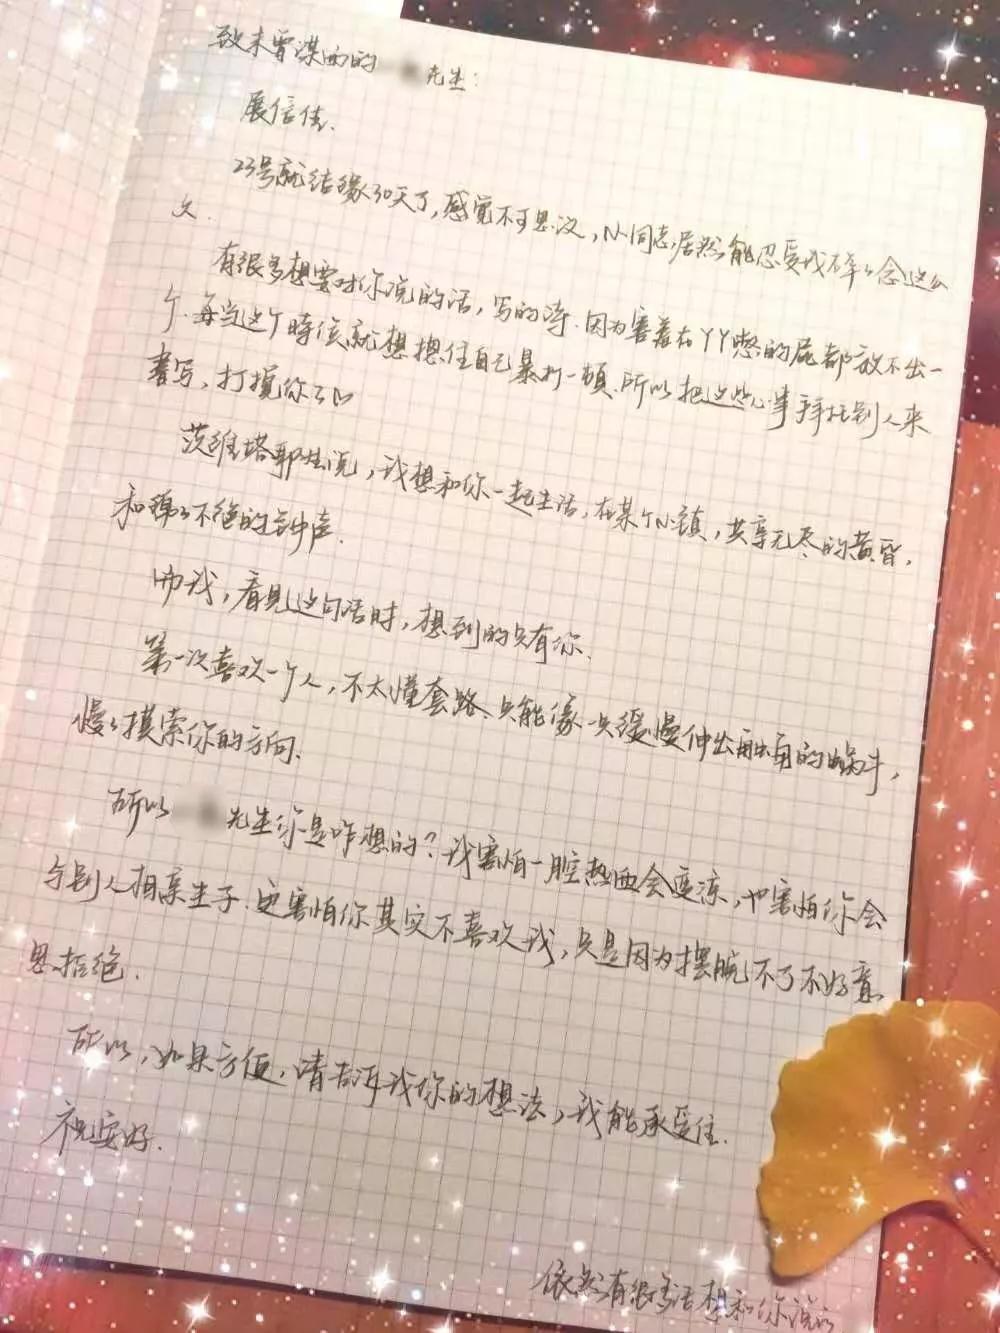 致未曾谋面的 先生:
展信佳.
23号就结缘30天了,感觉不可思议,小同志居然能忍受我碎々念这么
久.
有很多想要对你说的话,写的诗.因为害羞在YY憋的屁都放不出一
个.每当这个时候就想摁住自己暴打一顿.所以把这些心事拜托别人来
书写,打搅你了
茨维塔耶娃说,我想和你一起生活,在某个小镇,共享无尽的黄昏,
和绵々不绝的钟声.
而我,看见这句话时,想到的只有你.
第一次喜欢一个人,不太懂套路.只能像一只缓慢伸出触角的蜗牛,
慢々摸索你的方向.
所以 先生你是咋想的?我害怕一腔热血会变凉,也害怕你会
与别人相亲生子.更害怕你其实不喜欢我,只是因为摆脱不了不好意
思拒绝.
所以,如果方便,请告诉我你的想法,我能承受住.
祝安好.
依然有很多话想和你说的